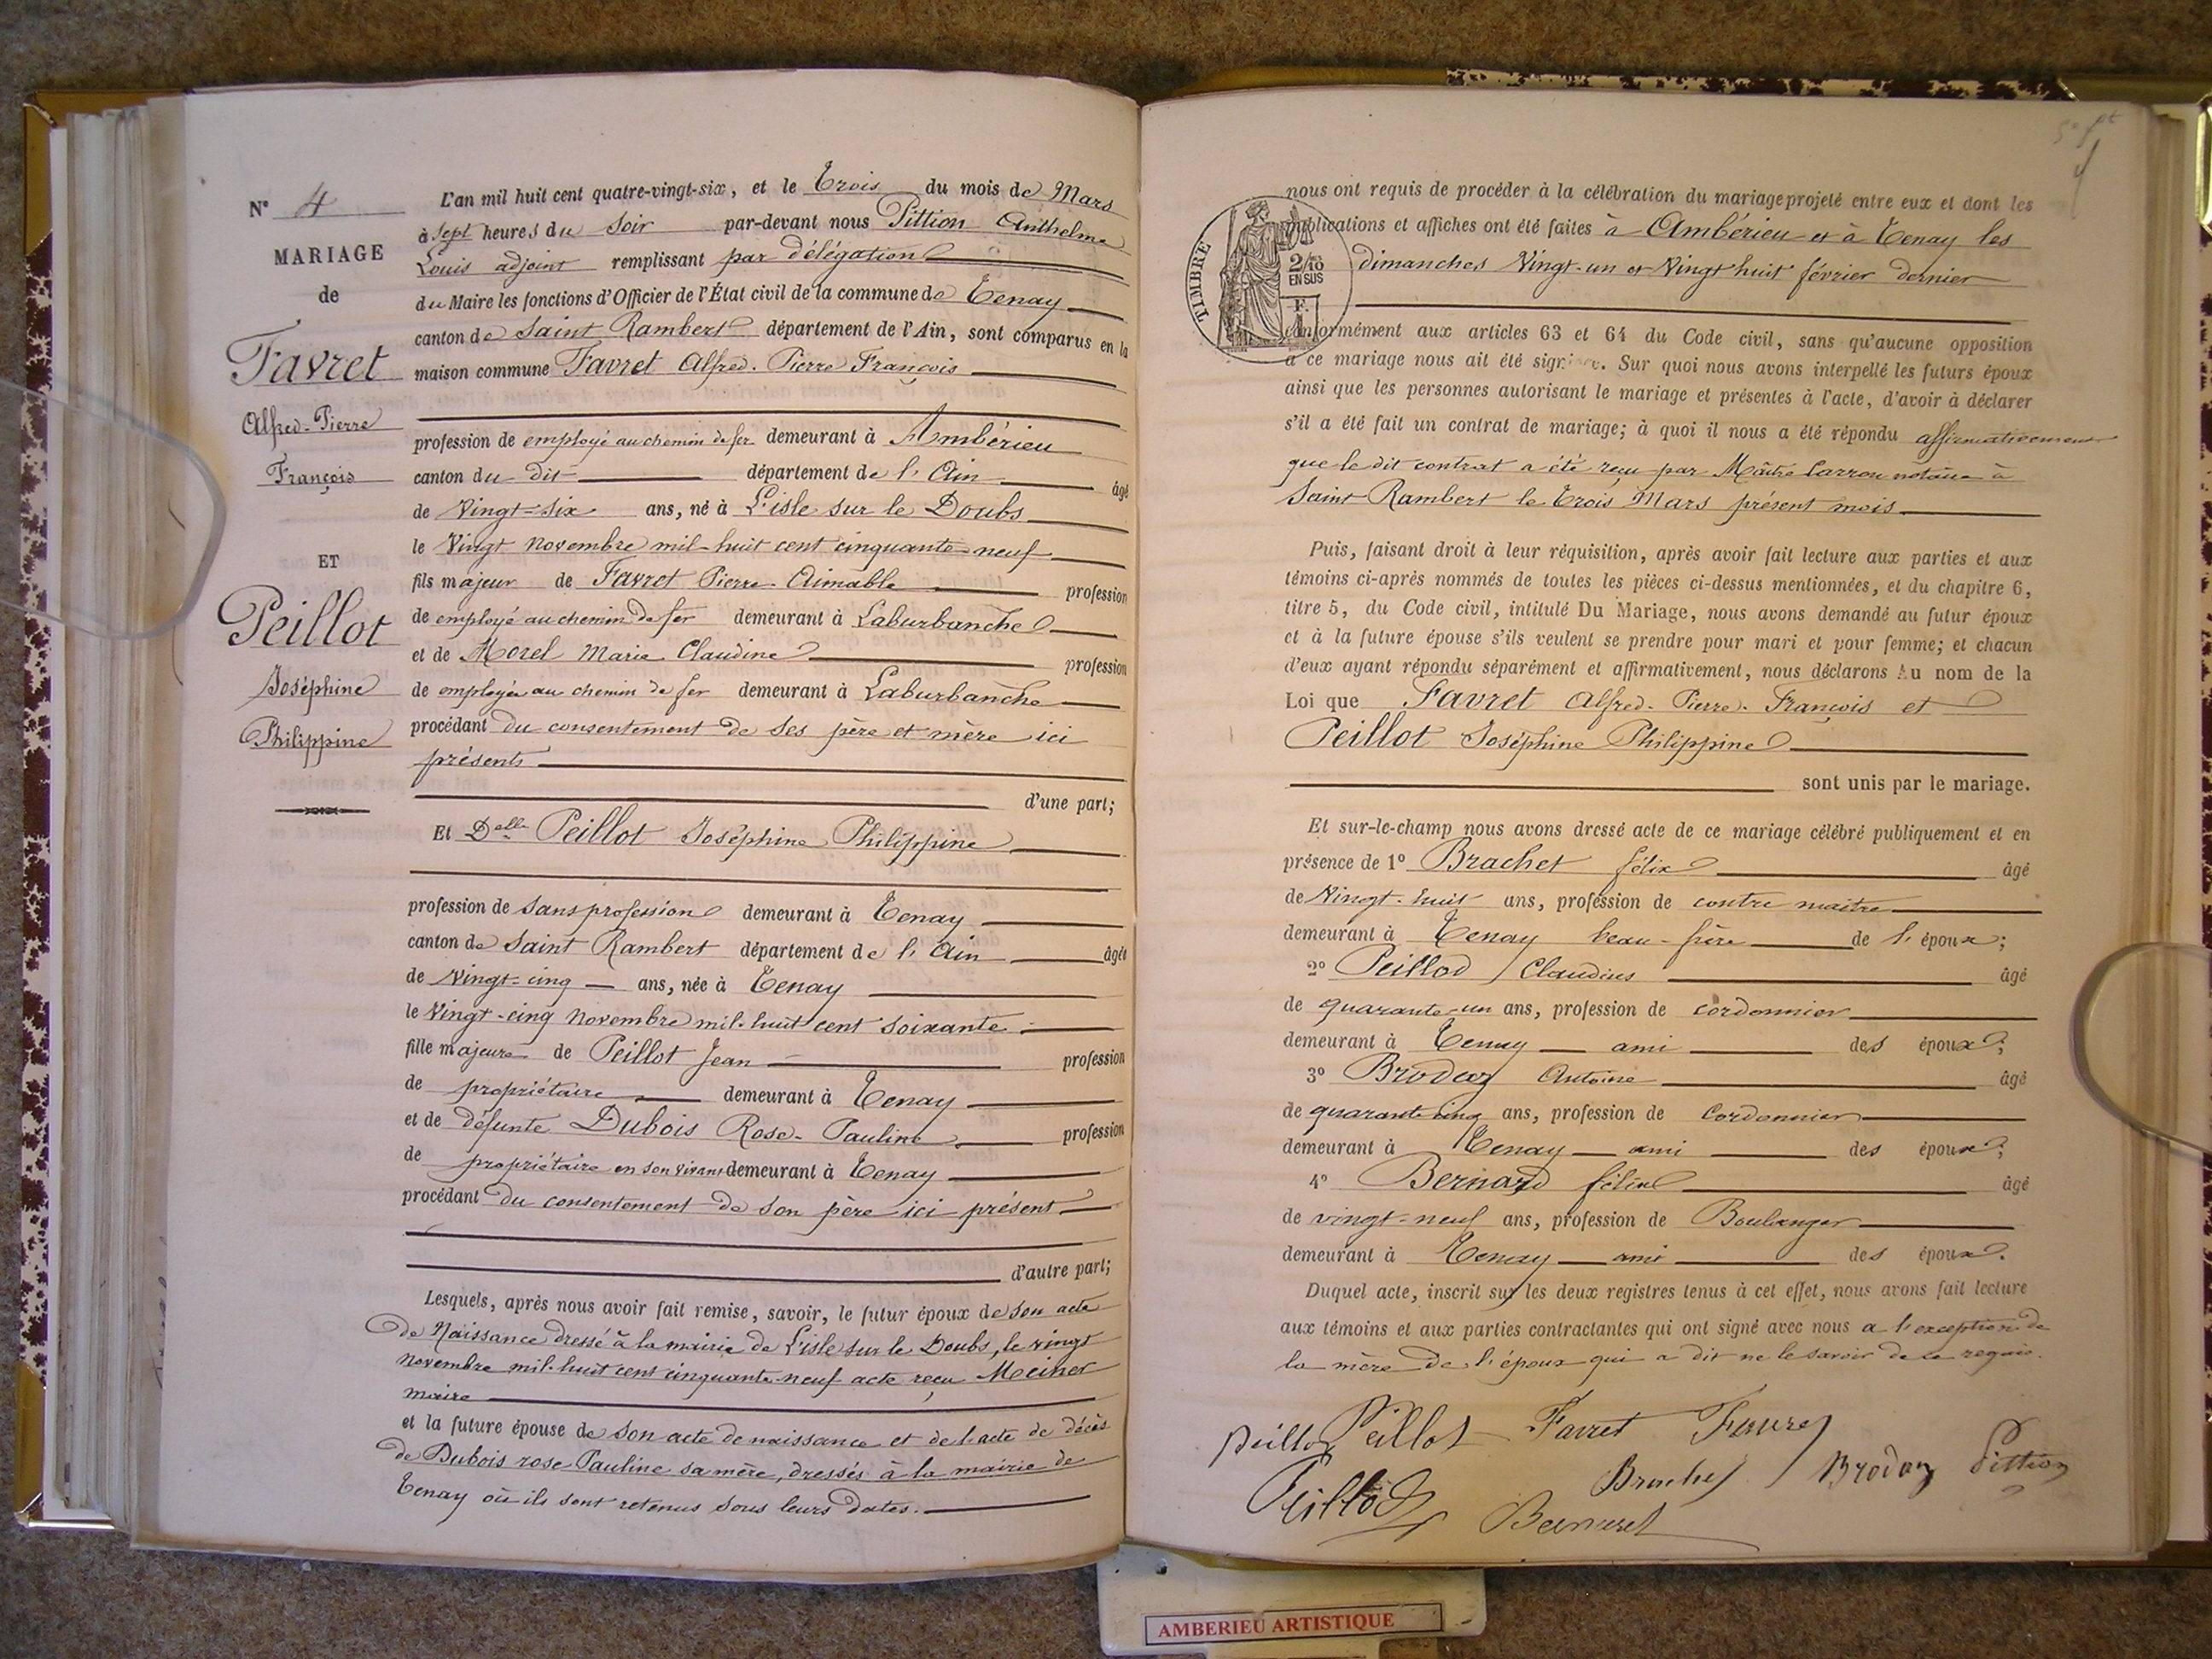 N° 4
MARIAGE
de
Favret
Alfred-Pierre
François
ET
Peillot
Joséphine
Philippine
L'an mil huit cent quatre-vingt-six, et le Trois du mois de Mars
à Sept heures du Soir par-devant nous Pittion Anthelme
Louis adjoint remplissant par délégation
du Maire les fonctions d'Officier de l'État civil de la commune de Tenay
canton de Saint Rambert département de l'Ain, sont comparus en la
maison commune Favret Alfred-Pierre François
profession de employé au chemin de fer demeurant à Ambérieu
canton du dit département de l'Ain âgé
de Vingt-six ans, né à L'isle sur le Doubs
le Vingt novembre mil-huit cent cinquante-neuf
fils majeur de Favret Pierre-Aimable profession
de employé au chemin de fer demeurant à Laburbanche
et de Morel Marie Claudine profession
de employée au chemin de fer demeurant à Laburbanche
procédant du consentement de ses père et mère ici
présents
d'une part;
Et Delle Peillot Joséphine Philippine
profession de sans profession demeurant à Tenay
canton de Saint Rambert département de l'Ain âgée
de Vingt-cinq ans, née à Tenay
le Vingt-cinq Novembre mil-huit cent soixante
fille majeure de Peillot Jean profession
de propriétaire demeurant à Tenay
et de défunte Dubois Rose-Pauline profession
de propriétaire en son vivant demeurant à Tenay
procédant du consentement de son père ici présent
d'autre part;
Lesquels, après nous avoir fait remise, savoir, le futur époux de son acte
de Naissance dressé à la mairie de L'isle sur le Doubs, le vingt
novembre mil-huit cent cinquante-neuf acte reçu Meiner
maire
et la future épouse de son acte de naissance et de l'acte de décès
de Dubois rose Pauline sa mère, dressés à la mairie de
Tenay où ils sont retenus sous leurs dates.
nous ont requis de procéder à la célébration du mariage projeté entre eux et dont les
publications et affiches ont été faites à Ambérieu et à Tenay les
TIMBRE
2/10
EN SUS
F.
1
dimanches Vingt-un et Vingt huit février dernier
conformément aux articles 63 et 64 du Code civil, sans qu'aucune opposition
à ce mariage nous ait été signifiée. Sur quoi nous avons interpellé les futurs époux
ainsi que les personnes autorisant le mariage et présentes à l'acte, d'avoir à déclarer
s'il a été fait un contrat de mariage; à quoi il nous a été répondu affirmativement
que le dit contrat a été reçu par Maître Carron notaire à
Saint Rambert le Trois Mars présent mois
Puis, faisant droit à leur réquisition, après avoir fait lecture aux parties et aux
témoins ci-après nommés de toutes les pièces ci-dessus mentionnées, et du chapitre 6,
titre 5, du Code civil, intitulé Du Mariage, nous avons demandé au futur époux
et à la future épouse s'ils veulent se prendre pour mari et pour femme; et chacun
d'eux ayant répondu séparément et affirmativement, nous déclarons Au nom de la
Loi que Favret Alfred-Pierre-François et
Peillot Joséphine Philippine
sont unis par le mariage.
Et sur-le-champ nous avons dressé acte de ce mariage célébré publiquement et en
présence de 1° Brachet félix âgé
de Vingt-huit ans, profession de contre maitre
demeurant à Tenay beau-frère de l'époux;
2° Peillod Claudius âgé
de quarante-un ans, profession de cordonnier
demeurant à Tenay ami des époux;
3° Brodaz Antoine âgé
de quarante cinq ans, profession de Cordonnier
demeurant à Tenay ami des époux;
4° Bernard félix âgé
de vingt-neuf ans, profession de Boulanger
demeurant à Tenay ami des époux.
Duquel acte, inscrit sur les deux registres tenus à cet effet, nous avons fait lecture
aux témoins et aux parties contractantes qui ont signé avec nous a l'exception de
la mère de l'époux qui a dit ne le savoir de ce requis.
Peillot Peillot Favret Favret
Brachet Brodaz Pittion
Peillod Bernard
AMBERIEU ARTISTIQUE